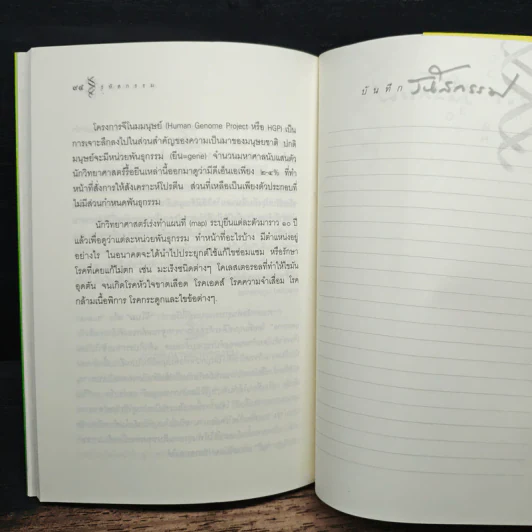 ๙๔ รหัสกรรม
โครงการจีโนมมนุษย์ (Human Genome Project หรือ HGP) เป็น
การเจาะลึกลงไปในส่วนสำคัญของความเป็นมาของมนุษยชาติ ปกติ
มนุษย์จะมีหน่วยพันธุกรรม (ยีน=gene) จำนวนมหาศาลนับแสนตัว
นักวิทยาศาสตร์รื้อยีนเหล่านี้ออกมาดูว่ามีดีเอ็นเอเพียง ๒-๔% ที่ทำ
หน้าที่สั่งการให้สังเคราะห์โปรตีน ส่วนที่เหลือเป็นเพียงตัวประกอบที่
ไม่มีส่วนกำหนดพันธุกรรม
นักวิทยาศาสตร์เร่งทำแผนที่ (map) ระบุยีนแต่ละตัวมาราว ๑๐ ปี
แล้วเพื่อดูว่าแต่ละหน่วยพันธุกรรม ทำหน้าที่อะไรบ้าง มีตำแหน่งอยู่
อย่างไร ในอนาคตจะได้นำไปประยุกต์ใช้แก้ไขซ่อมแซม หรือรักษา
โรคที่เคยแก้ไม่ตก เช่น มะเร็งชนิดต่างๆ โคเลสเตอรอลที่ทำให้ไขมัน
อุดตัน จนเกิดโรคหัวใจขาดเลือด โรคเอดส์ โรคความจำเสื่อม โรค
กล้ามเนื้อพิการ โรคกระดูกและไขข้อต่างๆ
บันทึก รหัสกรรม